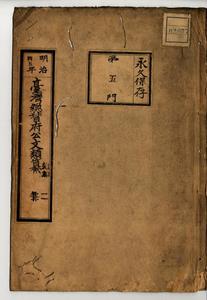 永久保存
第五門
明治
四五年
臺灣總督府公文類纂